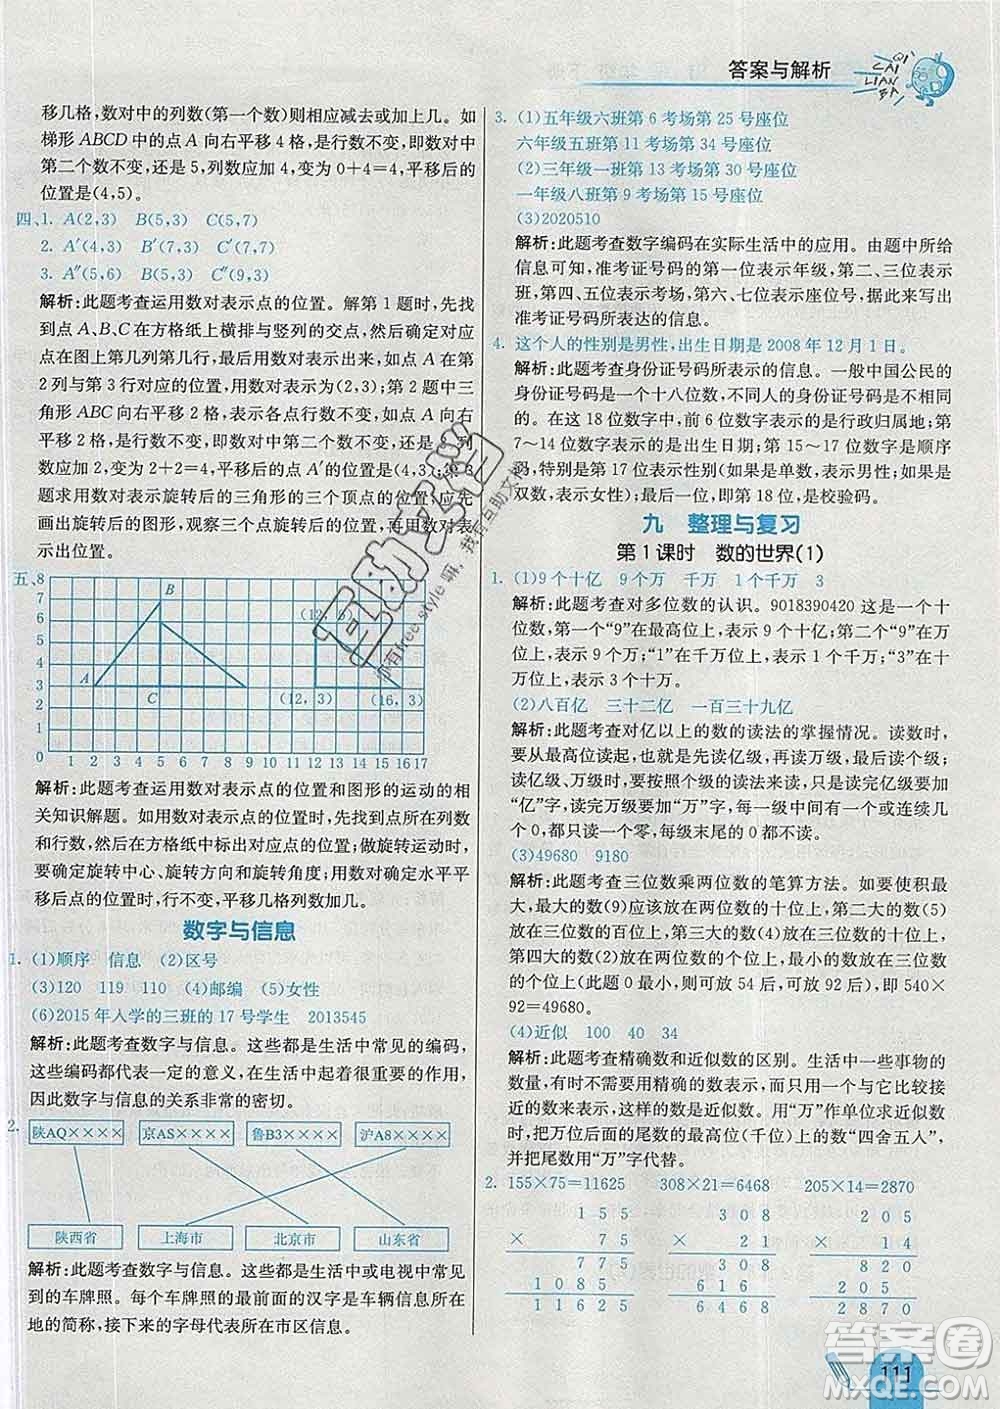 答案与解析
QI CAI LIAN BA
移几格，数对中的列数(第一个数)则相应减去或加上几。如
梯形 ABCD 中的点 A 向右平移 4 格，是行数不变，即数对中
第二个数不变，还是 5，列数应加 4，变为 0+4=4，平移后的
位置是(4,5)。
四、1. A(2,3) B(5,3) C(5,7)
2. A′(4,3) B′(7,3) C′(7,7)
3. A″(5,6) B″(5,3) C″(9,3)
解析：此题考查运用数对表示点的位置。解第 1 题时，先找
到点 A、B、C 在方格纸上横排与竖列的交点，然后确定对应
点在图上第几列第几行，最后用数对表示出来，如点 A 在第
2 列与第 3 行对应的位置，用数对表示为(2,3)；第 2 题中三
角形 ABC 向右平移 2 格，表示各点行数不变，列数加 2，如
点 A 向右平移 2 格，行数不变，即数对中第二个数不变，列
数应加 2，变为 2+2=4，平移后的点 A′的位置是(4,3)；第 3
题求用数对表示旋转后的三角形的三个顶点的位置，应先
画出旋转后的图形，观察三个点的位置，再用数对表
示出位置。
五、8
7
6
5
4
3
2
1
0
B
A
C
(12,6)
(12,3)
(16,3)
1 2 3 4 5 6 7 8 9 10 11 12 13 14 15 16 17
解析：此题考查运用数对表示点的位置和图形的运动的相
关知识解题。如用数对表示点的位置时，先找到点所在列数
和行数，然后在方格纸中标出对应点的位置；做旋转运动时，
要确定旋转中心、旋转方向和旋转角度；用数对确定水平平
移后点的位置时，行不变，平移几格列数加几。
数字与信息
1. (1)顺序 信息 (2)区号
(3)120 119 110 (4)邮编 (5)女性
(6)2015 年入学的三班的 17 号学生 2013545
解析：此题考查数字与信息。这些都是生活中常见的编码，
这些编码都代表一定的意义，在生活中都起着很大的作用，
因此数字与信息的关系非常的密切。
2. 陕AQ×××× 京AS×××× 鲁B3×××× 沪A8××××
陕西省 上海市 北京市 山东省
解析：此题考查数字与信息。这些都是生活中或电视中常见
到的车牌照。每个车牌照的最前面的汉字是车辆信息所在
地的简称，接下来的字母代表所在市区信息。
3. (1)五年级六班第 6 考场第 25 号座位
六年级五班第 11 考场第 34 号座位
(2)三年级一班第 13 考场第 14 号座位
一年级八班第 9 考场第 15 号座位
(3)2020510
解析：此题考查数字编码在实际生活中的应用。由题中所给
信息可知，准考证号码的第一位表示年级，第二、三位表示
班，第四、五位表示考场，第六、七位表示座位号，据此写出
准考证号码所表达的信息。
4. 这个人的性别是男性，出生日期是 2008 年 12 月 1 日。
解析：此题考查身份证号码所表示的信息。一般中国公民的
身份证号码是一个十八位数，不同人的身份证号码是不相同
的。在这 18 位数字中，前 6 位数字表示的是行政归属地；第
7～14 位数字表示的是出生日期；第 15～17 位数字是顺序
码，特别是第 17 位表示性别(如果是单数，表示男性；如果是
双数，表示女性)；最后一位，即第 18 位，是校验码。
九 整理与复习
第 1 课时 数的世界(1)
1. (1)9 个十亿 9 个万 千万 1 个千万 3
解析：此题考查对多位数的认识。9018390420 这是一个十
位数，第一个“9”在最高位十亿位上，表示 9 个十亿；第二个
“9”在万位上，表示 9 个万；“1”在千万位上，表示 1 个千万；“3”在十万
位上，表示 3 个十万。
(2)八百亿 三十二亿 一百三十九亿
解析：此题考查对亿以上的数的读法的掌握情况。读数时，
要从最高位读起，也就是先读亿级，再读万级，最后读个级；
读亿级、万级时，要按照个级的读法来读，只是读完亿级要加
“亿”字，读完万级要加“万”字，每级中有一个 0 或连续几个
0，都只读一个零，每级末尾的 0 都不读。
(3)49680 9180
解析：此题考查三位数乘两位数的笔算方法。如要使积最
大，最大的数(9)应该放在两位数的十位上，第二大的数(5)
应放在三位数的百位上，第三大的数(4)放在三位数的十位上，
第四大的数(2)放在两位数的个位上，0 放在三位数
的个位上，所以，三位数的前两位可放 54，两位数可放 92，即 540×
92=49680。
(4)近似 100 40 34
解析：此题考查精确数和近似数的区别。生活中一些事物的
数量，有时不用精确的数表示，而只用一个与它比较接近的
整数来表示，这样的数是近似数。用“万”作单位求近似数
时，把万位后面的尾数的最高位(千位)上的数“四舍五入”，
并把尾数用“万”字代替。
2. 155×75=11625 308×21=6468 205×14=2870
155 308 205
× 75 × 21 × 14
775 308 820
1085 616 205
11625 6468 2870
111
答案圈
MXQE.COM